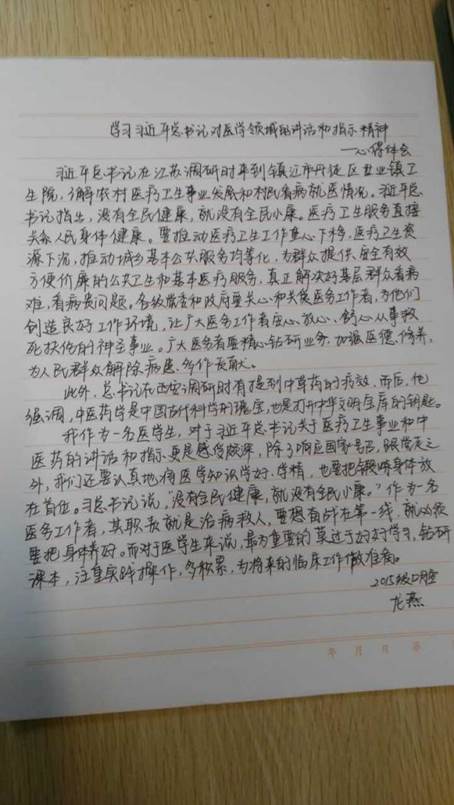 学习习近平总书记对医学领域的讲话和指示精神
——心得体会
习近平总书记在江苏调研时来到镇江市丹徒区世业镇卫
生院，了解农村医疗卫生事业发展和村民看病就医情况。习近平总
书记指出，没有全民健康，就没有全民小康。医疗卫生服务直接
关系人民身体健康。要推动医疗卫生工作重心下移，医疗卫生资
源下沉，推动城乡基本公共服务均等化，为群众提供安全有效
方便价廉的公共卫生和基本医疗服务，真正解决好基层群众看病
难，看病贵问题。各级党委和政府要关心和关爱医务工作者，为他们
创造良好工作环境，让广大医务工作者安心、放心、舒心从事救
死扶伤的神圣事业。广大医务者要精心钻研业务，加强医德修养，
为人民群众解除病患，多作贡献。
此外，总书记在西安调研时有提到中草药的疗效，而后，他
强调，中医药学是中国古代科学的瑰宝，也是打开中华文明宝库的钥匙。
我作为一名医学生，对于习近平总书记关于医疗卫生事业和中
医药的讲话和指示更是感受颇深，除了响应国家号召，跟党走之
外，我们还要认真地将医学知识学好、学精，也要把锻炼身体放
在首位。习总书记说，“没有全民健康，就没有全民小康。”作为一名
医务工作者，其职责就是治病救人，要想奋战在第一线，就必须
要把身体养好。而对于医学生来说，最为重要的莫过于好好学习，钻研
课本，注重实践操作，多积累，为将来的临床工作做准备。
2015级口腔
龙燕
年 月 日 第